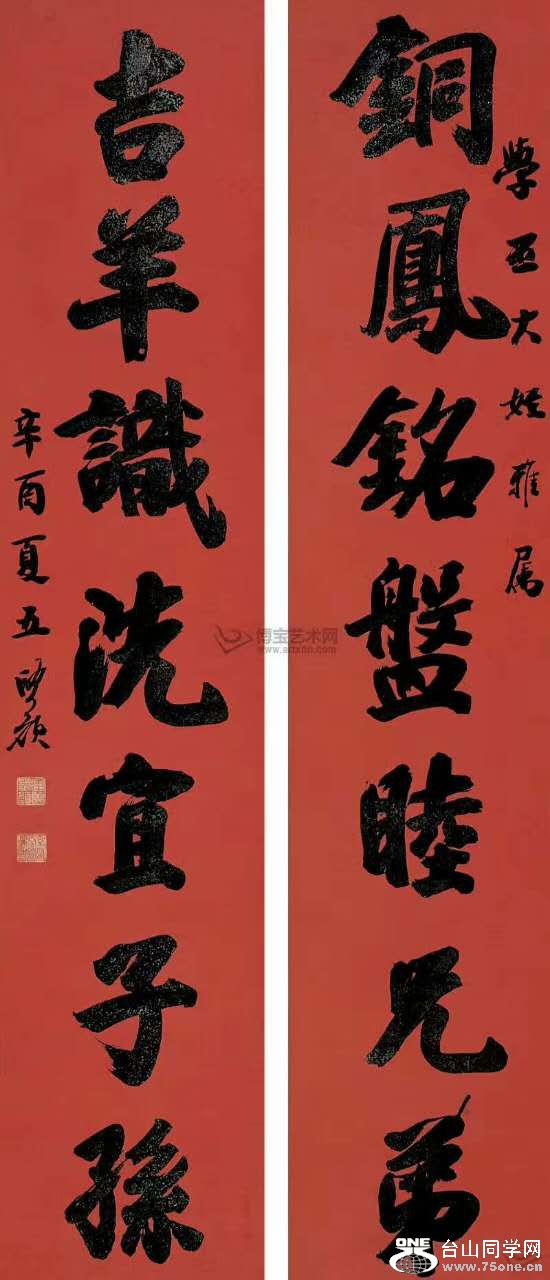 學五大姪雅属
銅鳳銘盤睦兄弟
吉羊識洗宜子孫
辛酉夏五
博宝艺术网
www.artxun.com
ONE
台山同学网
www.75one.cn